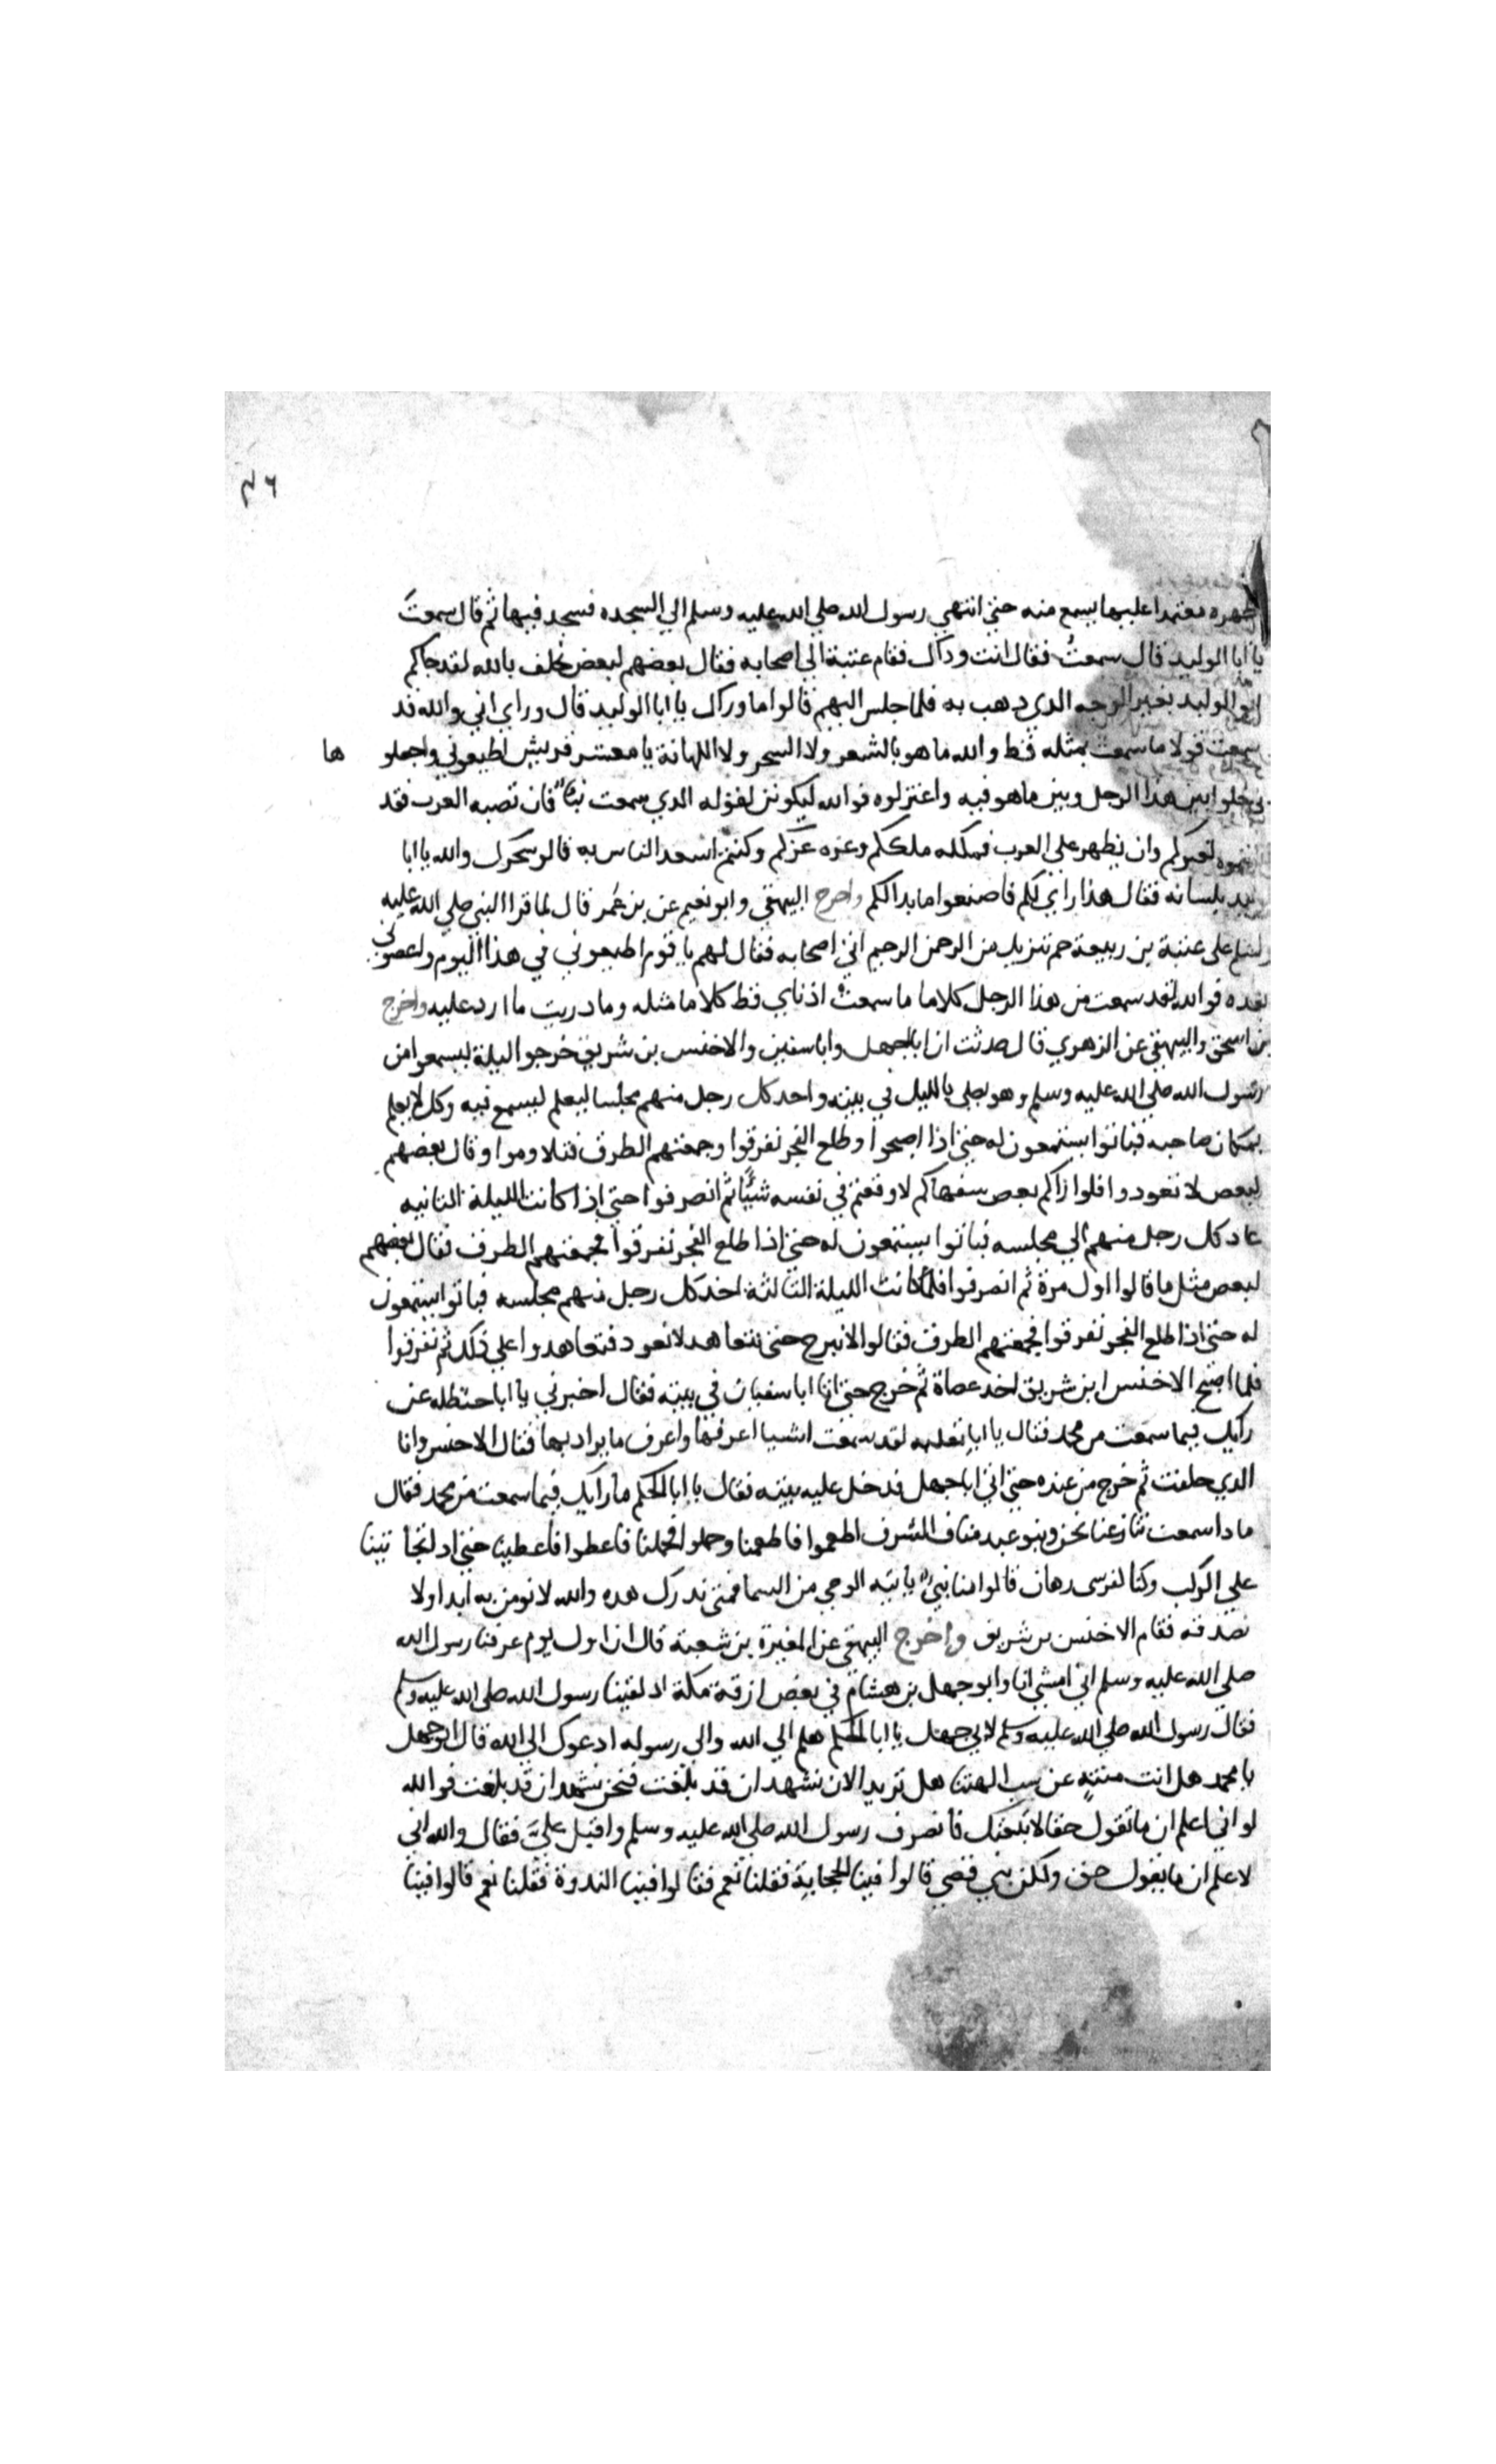 ٤٦
ظهره معتمدا عليها يسمع منه حتى انتهي رسول الله صلي الله عليه وسلم الي السجده فسجد فيها ثم قال سمعت
يا ابا الوليد قال سمعتُ فقال انت وذاك فقام عتبة الي اصحابه فقال بعضهم لبعض نحلف بالله لقد جاكم
ابو الوليد بغير الوجه الذي ذهب به فلما جلس اليهم قالوا ما وراك يا ابا الوليد قال وراي اني والله قد
سمعت قولا ما سمعت بمثله قط والله ما هو بالشعر ولا السحر ولا الكهانة يا معشر قريش اطيعوني واجعلو ها
بي خلوا بين هذا الرجل وبين ما هو فيه واعتزلوه فوالله ليكونن لقوله الذي سمعت نبأ فان تصبه العرب فقد
بغيركم وان يظهر علي العرب فملكه ملككم وعزه عزكم وكنتم اسعد الناس به قالو سحرك والله يا ابا
بلسانه فقال هذا رايي لكم فاصنعوا ما بدا لكم واخرج البيهقي وابو نعيم عن بن عُمر قال لما قرا النبي صلي الله عليه
علي عتبة بن ربيعة حم تنزيل من الرحمن الرحيم اتي اصحابه فقال لهم يا قوم اطيعوني في هذا اليوم واعصوني
بعده فوالله لقد سمعت من هذا الرجل كلاما ما سمعت اذناي قط كلاما مثله وما دريت ما ارد عليه واخرج
بن اسحق والبيهقي عن الزهري قال حدثت ان ابا جهل وابا سفين والاخنس بن شريق خرجوا ليلة ليسمعوا من
رسول الله صلي الله عليه وسلم وهو يصلي بالليل في بيته واخذ كل رجل منهم مجلسا ليعلم ليسمع فيه وكل لا يعلم
بمكان صاحبه فباتوا يستمعون له حتى اذا اصبحوا وطلع الفجر تفرقوا وجمعتهم الطرف فتلاوموا وقال بعضهم
لبعض لا نعود وا فلو راكم بعض سفهاكم لاوقعتم في نفسه شيًا ثم انصرفوا حتى اذا كانت الليلة الثانيه
عاد كل رجل منهم الي مجلسه فباتوا يستمعون له حتى اذا طلع الفجر تفرقوا فجمعتهم الطرف فقال بعضهم
لبعض مثل ما قالوا اول مرة ثم انصرفوا فلما كانت الليلة الثالثة اخذ كل رجل منهم مجلسه فباتوا يستمعون
له حتى اذا طلع الفجر تفرقوا فجمعتهم الطرف فقالوا لا نبرح حتى نتعاهد لا نعود فتعاهدوا علي ذلك ثم تفرقوا
فلما اصبح الاخنس ابن شريق اخذ عصاة ثم خرج حتى اتا ابا سفيان في بيته فقال اخبرني يا ابا حنظله عن
رايك فيما سمعت من محمد فقال يا ابا ثعلبه لقد سمعت اشيا اعرفها واعرف ما يراد بها فقال الاخنس وانا
الذي حلفت ثم خرج من عنده حتى اتي ابا جهل فدخل عليه بيته فقال يا ابا الحكم ما رايك فيما سمعت من محمد فقال
ماذا سمعت تنازعنا نحن وبنو عبد مناف الشرف اطعموا فاطعمنا وحملوا فحملنا فاعطوا فاعطينا حتى اذ لتجا ثينا
علي الركب وكنا كفرسي رهان قالوا منا نبي ياتيه الوحي من السما فمتى ندرك هذه والله لا نومن به ابدا ولا
نصدقه فقام الاخنس بن شريق واخرج البيهقي عن المغيرة بن شعبة قال ان اول يوم عرفنا رسول الله
صلي الله عليه وسلم اني امشي انا وابو جهل بن هشام في بعض ازقة مكة اذ لقينا رسول الله صلي الله عليه وسلم
فقال رسول الله صلي الله عليه وسلم لابي جهل يا ابا الحكم هلم الي الله والي رسوله ادعوك الي الله قال ابو جهل
يا محمد هل انت منتهٍ عن سب الهتنا هل تريد الا ان نشهد ان قد بلغت فنحن نشهد ان قد بلغت فوالله
لو اني اعلم ان ما تقول حقا لاتبعتك فانصرف رسول الله صلي الله عليه وسلم واقبل عليَّ فقال والله اني
لاعلم ان ما يقول حق ولكن بني قصي قالوا فينا الحجابة فقلنا نعم فقالوا فينا الندوة فقلنا نعم قالوا فينا